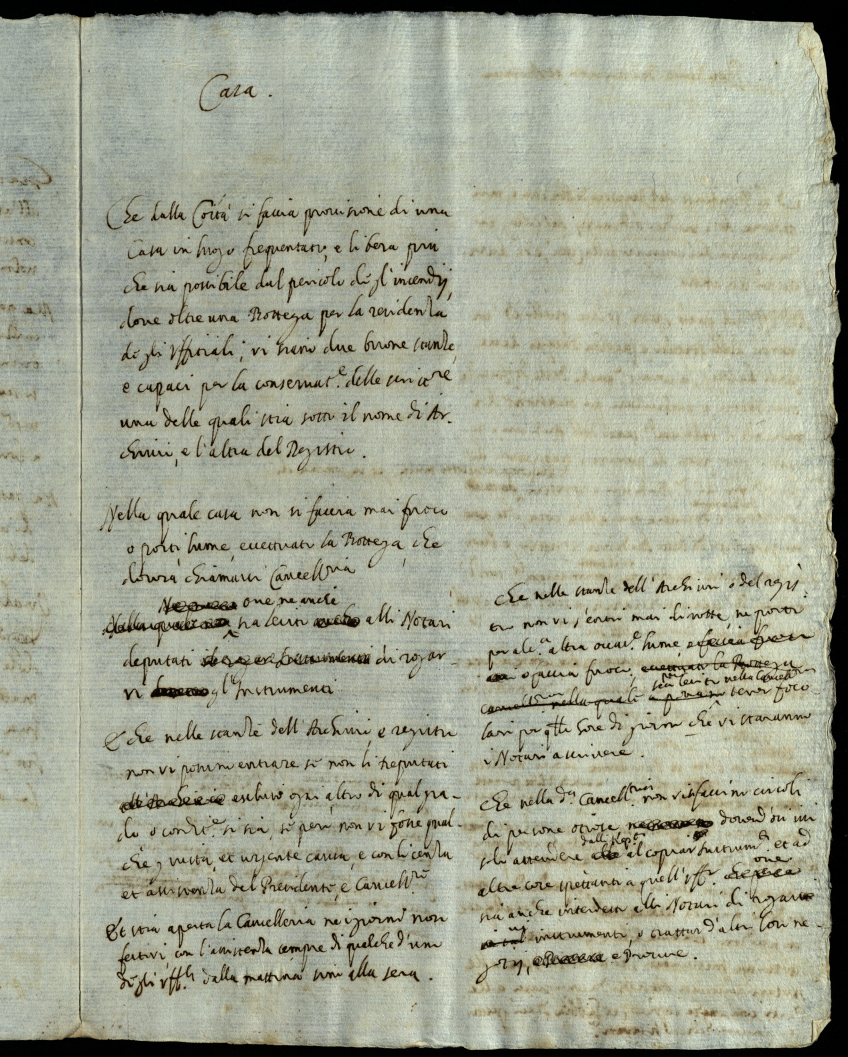 Casa.
Che dalla Città si faccia provisione di una
Casa in luogo frequentato, e libera più
che sia possibile dal pericolo degl'incendij,
dove oltre una Bottega per la residenza
degli Ufficiali, vi siano due buone stanze,
e capaci per la conservat.e delle scritt.re
una delle quali stia sotto il nome di Ar-
chivio, e l'altra del Registro.
Nella quale casa non si faccia mai fuoco
o porti lume, eccettuati la Bottega, che
dovrà chiamarsi Cancell.ria
ove ne anche
sia lecito alli Notari
deputati di rogar-
vi gl'Instrumenti
E che nelle stanze dell'Archivio, e registro
non vi possino entrare se non li deputati
escluso ogni altro di qual gra-
do o condit.e si sia, se però non vi fosse qual-
che giusta, et urgente causa, e con licenza
et assistenza del Presidente, e Cancell.re
Et stia aperta la Cancelleria ne i giorni non
festivi con l'assistenza sempre di qualched'uno
degli Uff.li dalla mattina sino alla sera.
Che nelle stanze dell'Archivio o del regis-
tro non vi s'entri mai di notte, ne porti
per alc.a altra occas.e lume
o faccia fuoco, eccettuati la Bottega
sia lecito nella Cancell.ria
nella quale tener foco-
lari per q.lle hore di giorno che vi staranno
i Notari a scrivere.
Che nella d.a Cancell.ria non si faccino circoli
di persone otiose, dovendosi ivi
solo attendere al copiar Instrum.ti et ad
altre cose spettanti a quell'Uff.o
ove
sia anche interdetto alli Notari di rogare
instrumenti, o trattar d'altri lor ne-
gozij, e Procure.